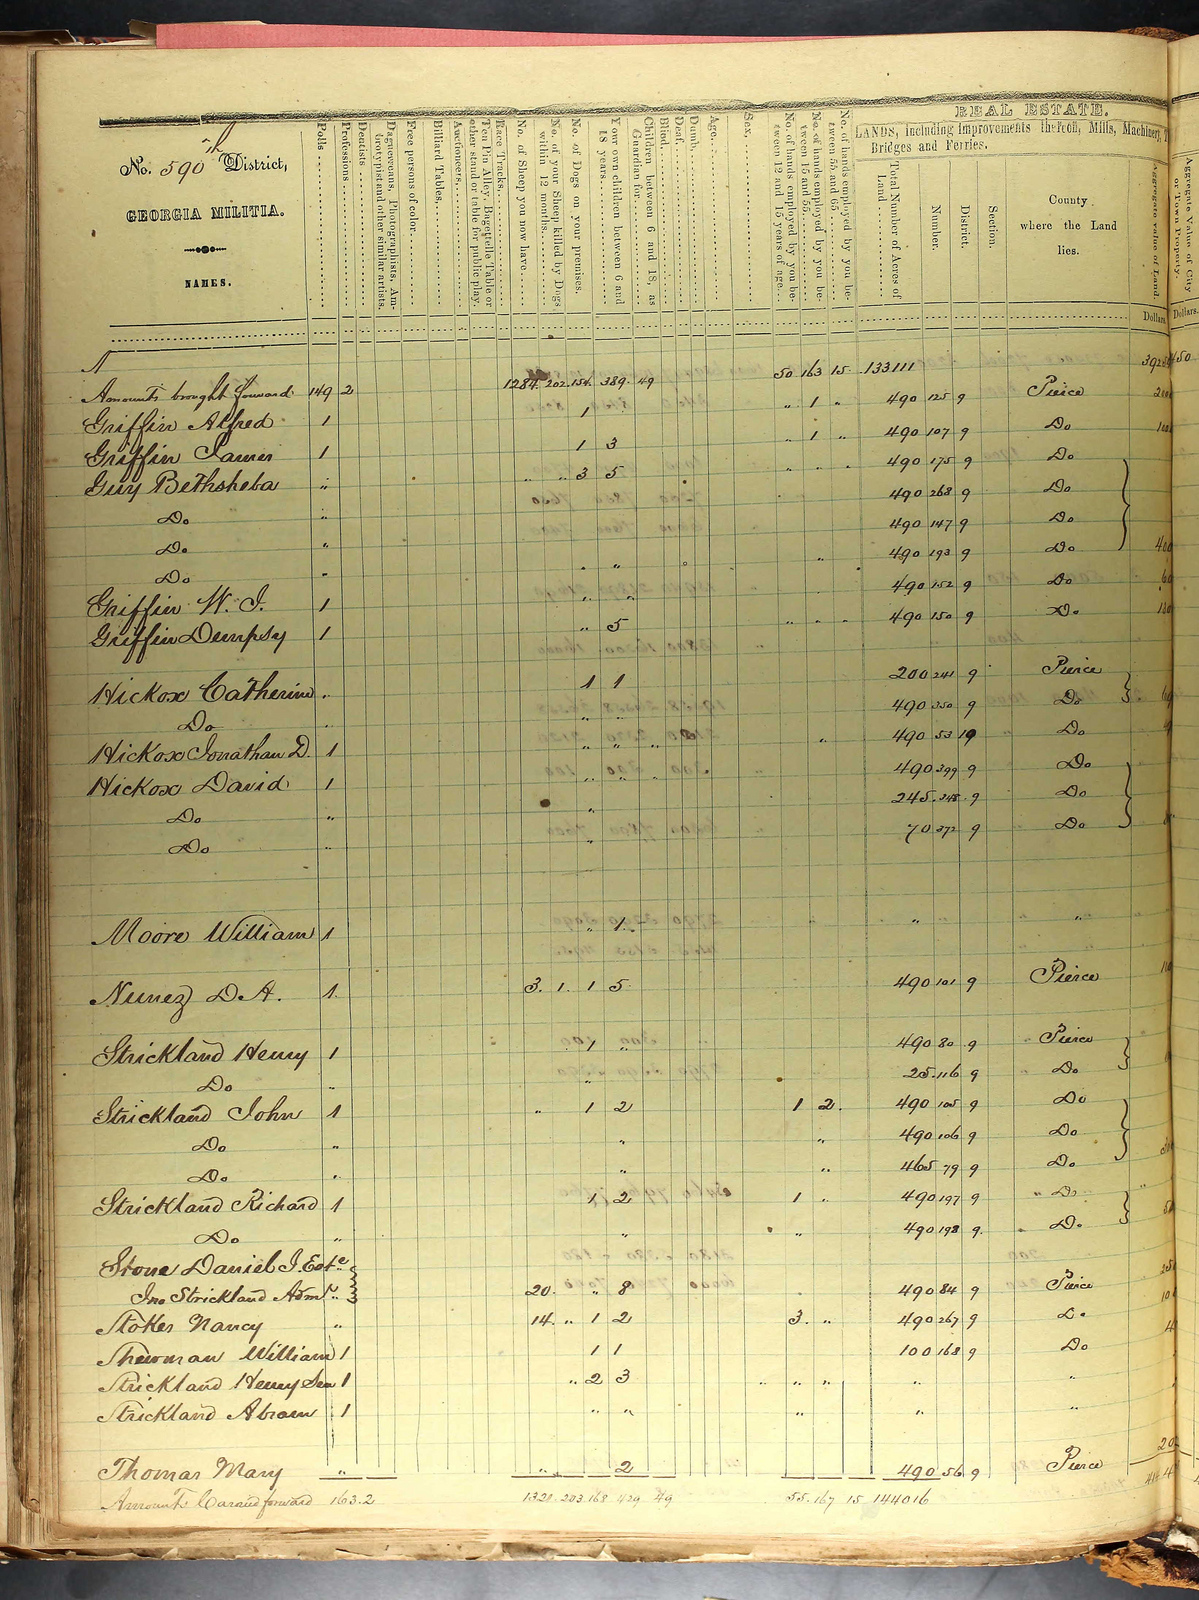 No. 590th District,
GEORGIA MILITIA.
NAMES.
Polls
Professions
Dentists
Daguereans, Photographists, Am-
brotypist and other similar artists.
Free persons of color
Billiard Tables,
Auctioneers,
Ten Pin Alley, Bagettelle Table or
other stand or table for public play.
Race Tracks,
No. of Sheep you now have.
No. of your Sheep killed by Dogs
within 12 months.
No. of Dogs on your premises.
Your own children between 6 and
18 years.
Children between 6 and 18, as
Guardian for
Blind.
Deaf.
Dumb.
Age.
Sex.
No. of hands employed by you be-
tween 12 and 15 years of age.
No. of hands employed by you be-
tween 15 and 55.
No. of hands employed by you be-
tween 55 and 65.
REAL ESTATE.
LANDS, Including Improvements thereon, Mills, Machinery,
Bridges and Ferries.
Total Number of Acres of
Land.
Number.
District.
Section.
County
where the Land
lies.
Aggregate value of Land.
Dollars
Aggregate Value of City
or Town Property.
Dollars.
Amounts brought forward 149 2 1284 202 154 389 49 50 163 15 133111
Griffin Alfred 1 1 " 1 " 490 125 9 Pierce
Griffin James 1 1 3 " 1 " 490 107 9 Do
Guy Bethsheba " " " 3 5 " " " 490 175 9 Do
Do " 490 268 9 Do
Do " 490 147 9 Do
Do " " " 490 193 9 Do
Griffin W. J. 1 " " 490 152 9 Do
Griffin Dempsy 1 " 5 " " " 490 150 9 Do
Hickox Catherine " 1 1 200 241 9 Pierce
Do " " " 490 350 9 Do
Hickox Jonathan D. 1 " " " " 490 53 19 Do
Hickox David 1 " " " 490 399 9 Do
Do " " 245 348 9 Do
Do " " 70 372 9 Do
Moore William 1 " 1 " " " " "
Nunez D. A. 1 3 1 1 5 490 101 9 Pierce
Strickland Henry 1 1 " 490 80 9 Pierce
Do " " 25 116 9 Do
Strickland John 1 " 1 2 1 2 490 105 9 Do
Do " " " 490 106 9 Do
Do " " " 465 79 9 Do
Strickland Richard 1 1 2 1 " 490 197 9 Do
Do " " " 490 198 9 Do
Stone Daniel J. Este
Jno Strickland Admr " 20 " 8 490 84 9 Pierce
Stokes Nancy " 14 " 1 2 3 " 490 267 9 Do
Shewman William 1 1 1 100 168 9 Do
Strickland Henry Sen 1 " 2 3 " " " " " "
Strickland Abram 1 " " " " " "
Thomas Mary " " 2 490 56 9 Pierce
Amounts Carried forward 163 2 1320 203 168 429 49 55 167 15 144016